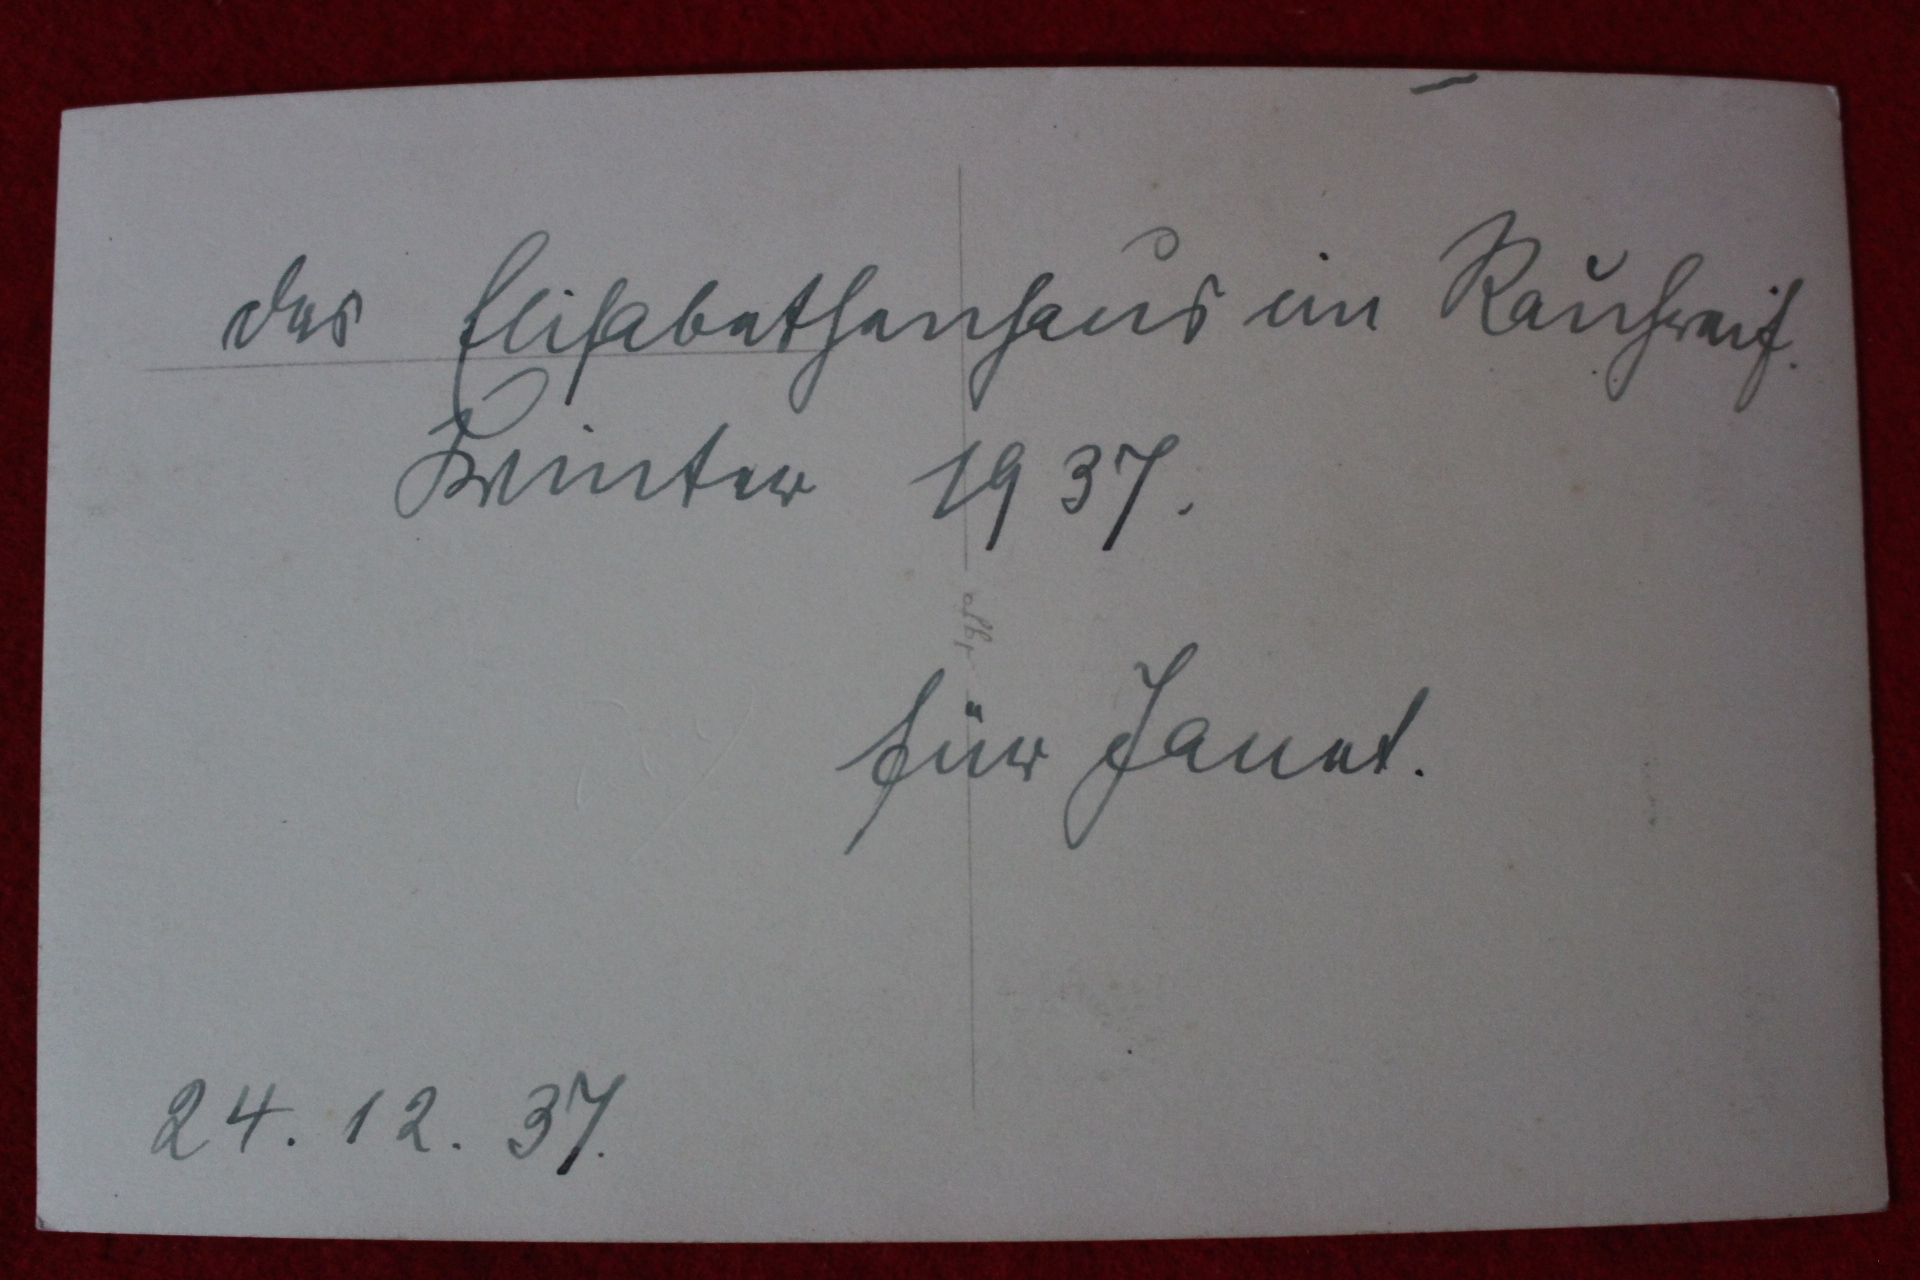 das Elisabethenhaus im Rauhreif.
Winter 1937.
für Janet.
24. 12. 37.